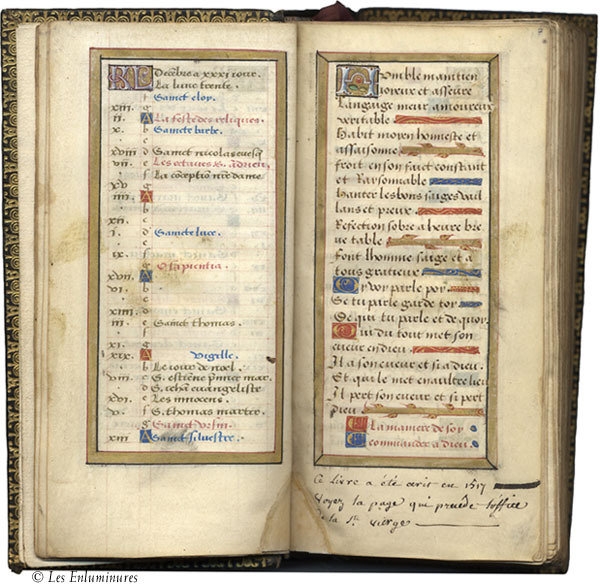 KL Decẽbre a xxxi iour.
La lune trente.
f Sainct eloy.
xiii. g
ii. A La feste des reliques.
x. b Saincte barbe.
c
xviii d Sainct nicolas euesq
vii. e Les octaues S. Adrieu,
f La cõceptiõ nr̃e dame
xv g
iiii. A
b
xii. c
i. d Saincte luce.
e
ix. f
g O sapientia.
xvii. A
vi. b
c
xiiii. d
iii. e Sainct thomas.
f
xi. g
xix. A Vigille.
b Le iour de noel.
viii. c S. estiẽne p̃mier mar.
d S. iehã euangeliste
xvi e Les innocens.
v. f S. thomas martir.
g Sainct
xiii A Sainct siluestre.
Humble maintien
ioieux et asseure
Langaige meur amoureux
veritable
Habit moyen honneste et
assaisonne
froit en son faict constant
et Raisonnable
Hanter les bons saiges vail
lans et preux.
Refection sobre a heure bre
ue table
font lhomme saige et a
tous gratieux
Or voy parle por
Se tu parle garde toy
De qui tu parle et de quoy.
Qui du tout met son
cueur en dieu
Il a son cueur et si a dieu.
Et qui le met en aultre lieu
Il pert son cueur et si pert
Dieu
La maniere de soy
commander a dieu.
Ce livre a été écrit en 1517
voyez la page qui précède l'office
de la Ste Vierge
© Les Enluminures